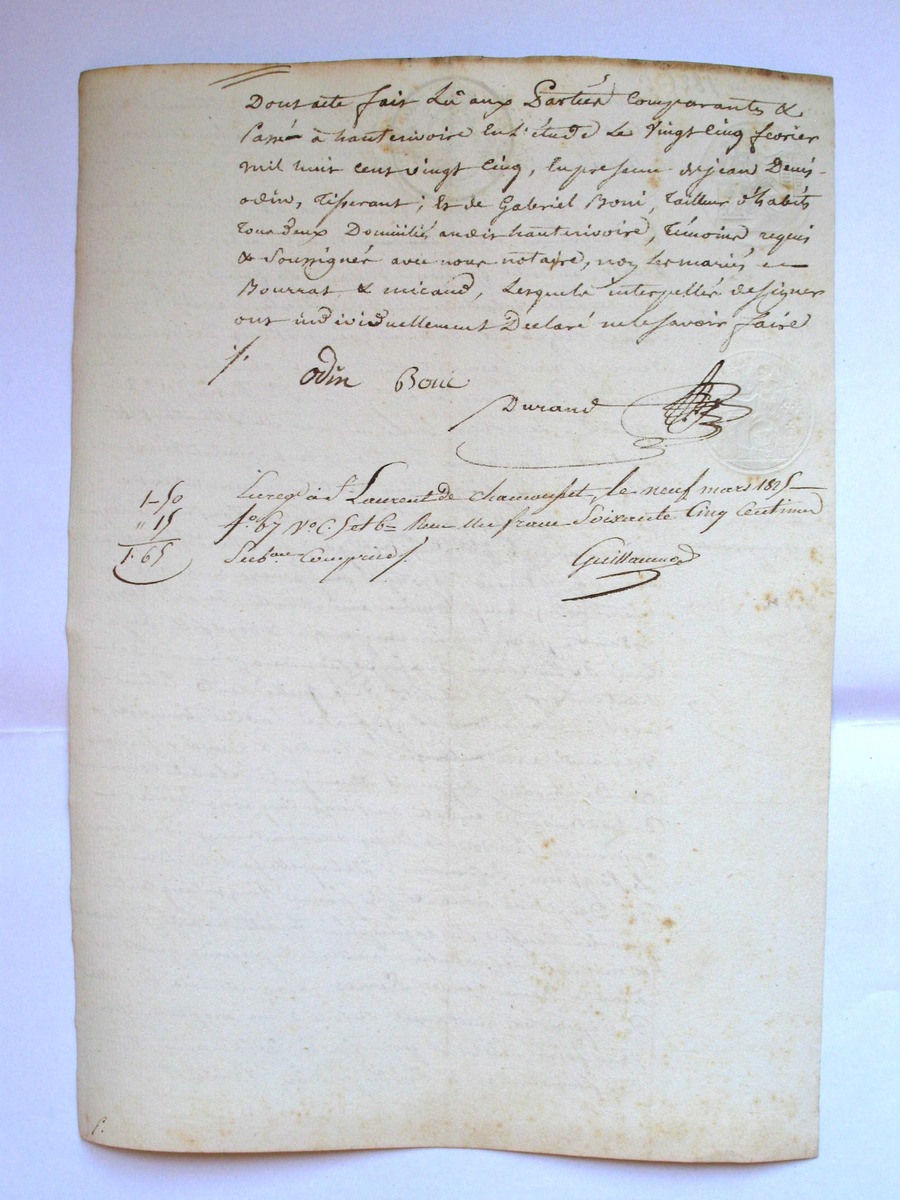 Dont acte fait Lu aux Parties Comparantes &
Passé à hauterivoire En l'étude Le Vingt Cinq fevrier
mil huit cent vingt Cinq, En presence de jean Denis
odin, Tisserant; Et de Gabriel Boni, Tailleur d'habits
Tous deux Domiciliés audit hauterivoire, Témoins requis
& Soussignés avec nous notaire, non Les mariés et
Bourrat & micaud, Lesquels interpellés de signer
ont individuellement Declaré ne le Savoir faire
Odin Boni
Durand
Enreg. à St Laurent de Chamousset, le neuf mars 1825
fo. 67 Vo. C. 5 et 6 Recu Un franc Soixante Cinq Centimes
Subon. Compris
Guillaumod
1-50
" 15
1-65